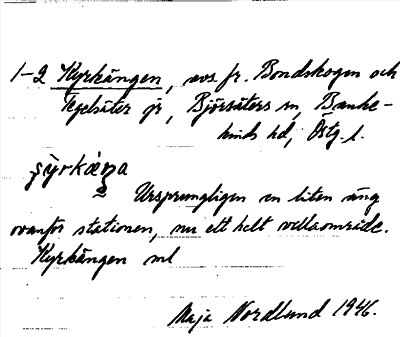 1-2 Kyrkängen, avs. fr. Bondskogen och
Tegelsäter jr, Björsäters sn, Banke-
kinds hd, Östg. l.
Ursprungligen en liten äng
ovanför stationen, nu ett helt villaområde.
Kyrkängen ml
Maja Nordlund 1946.